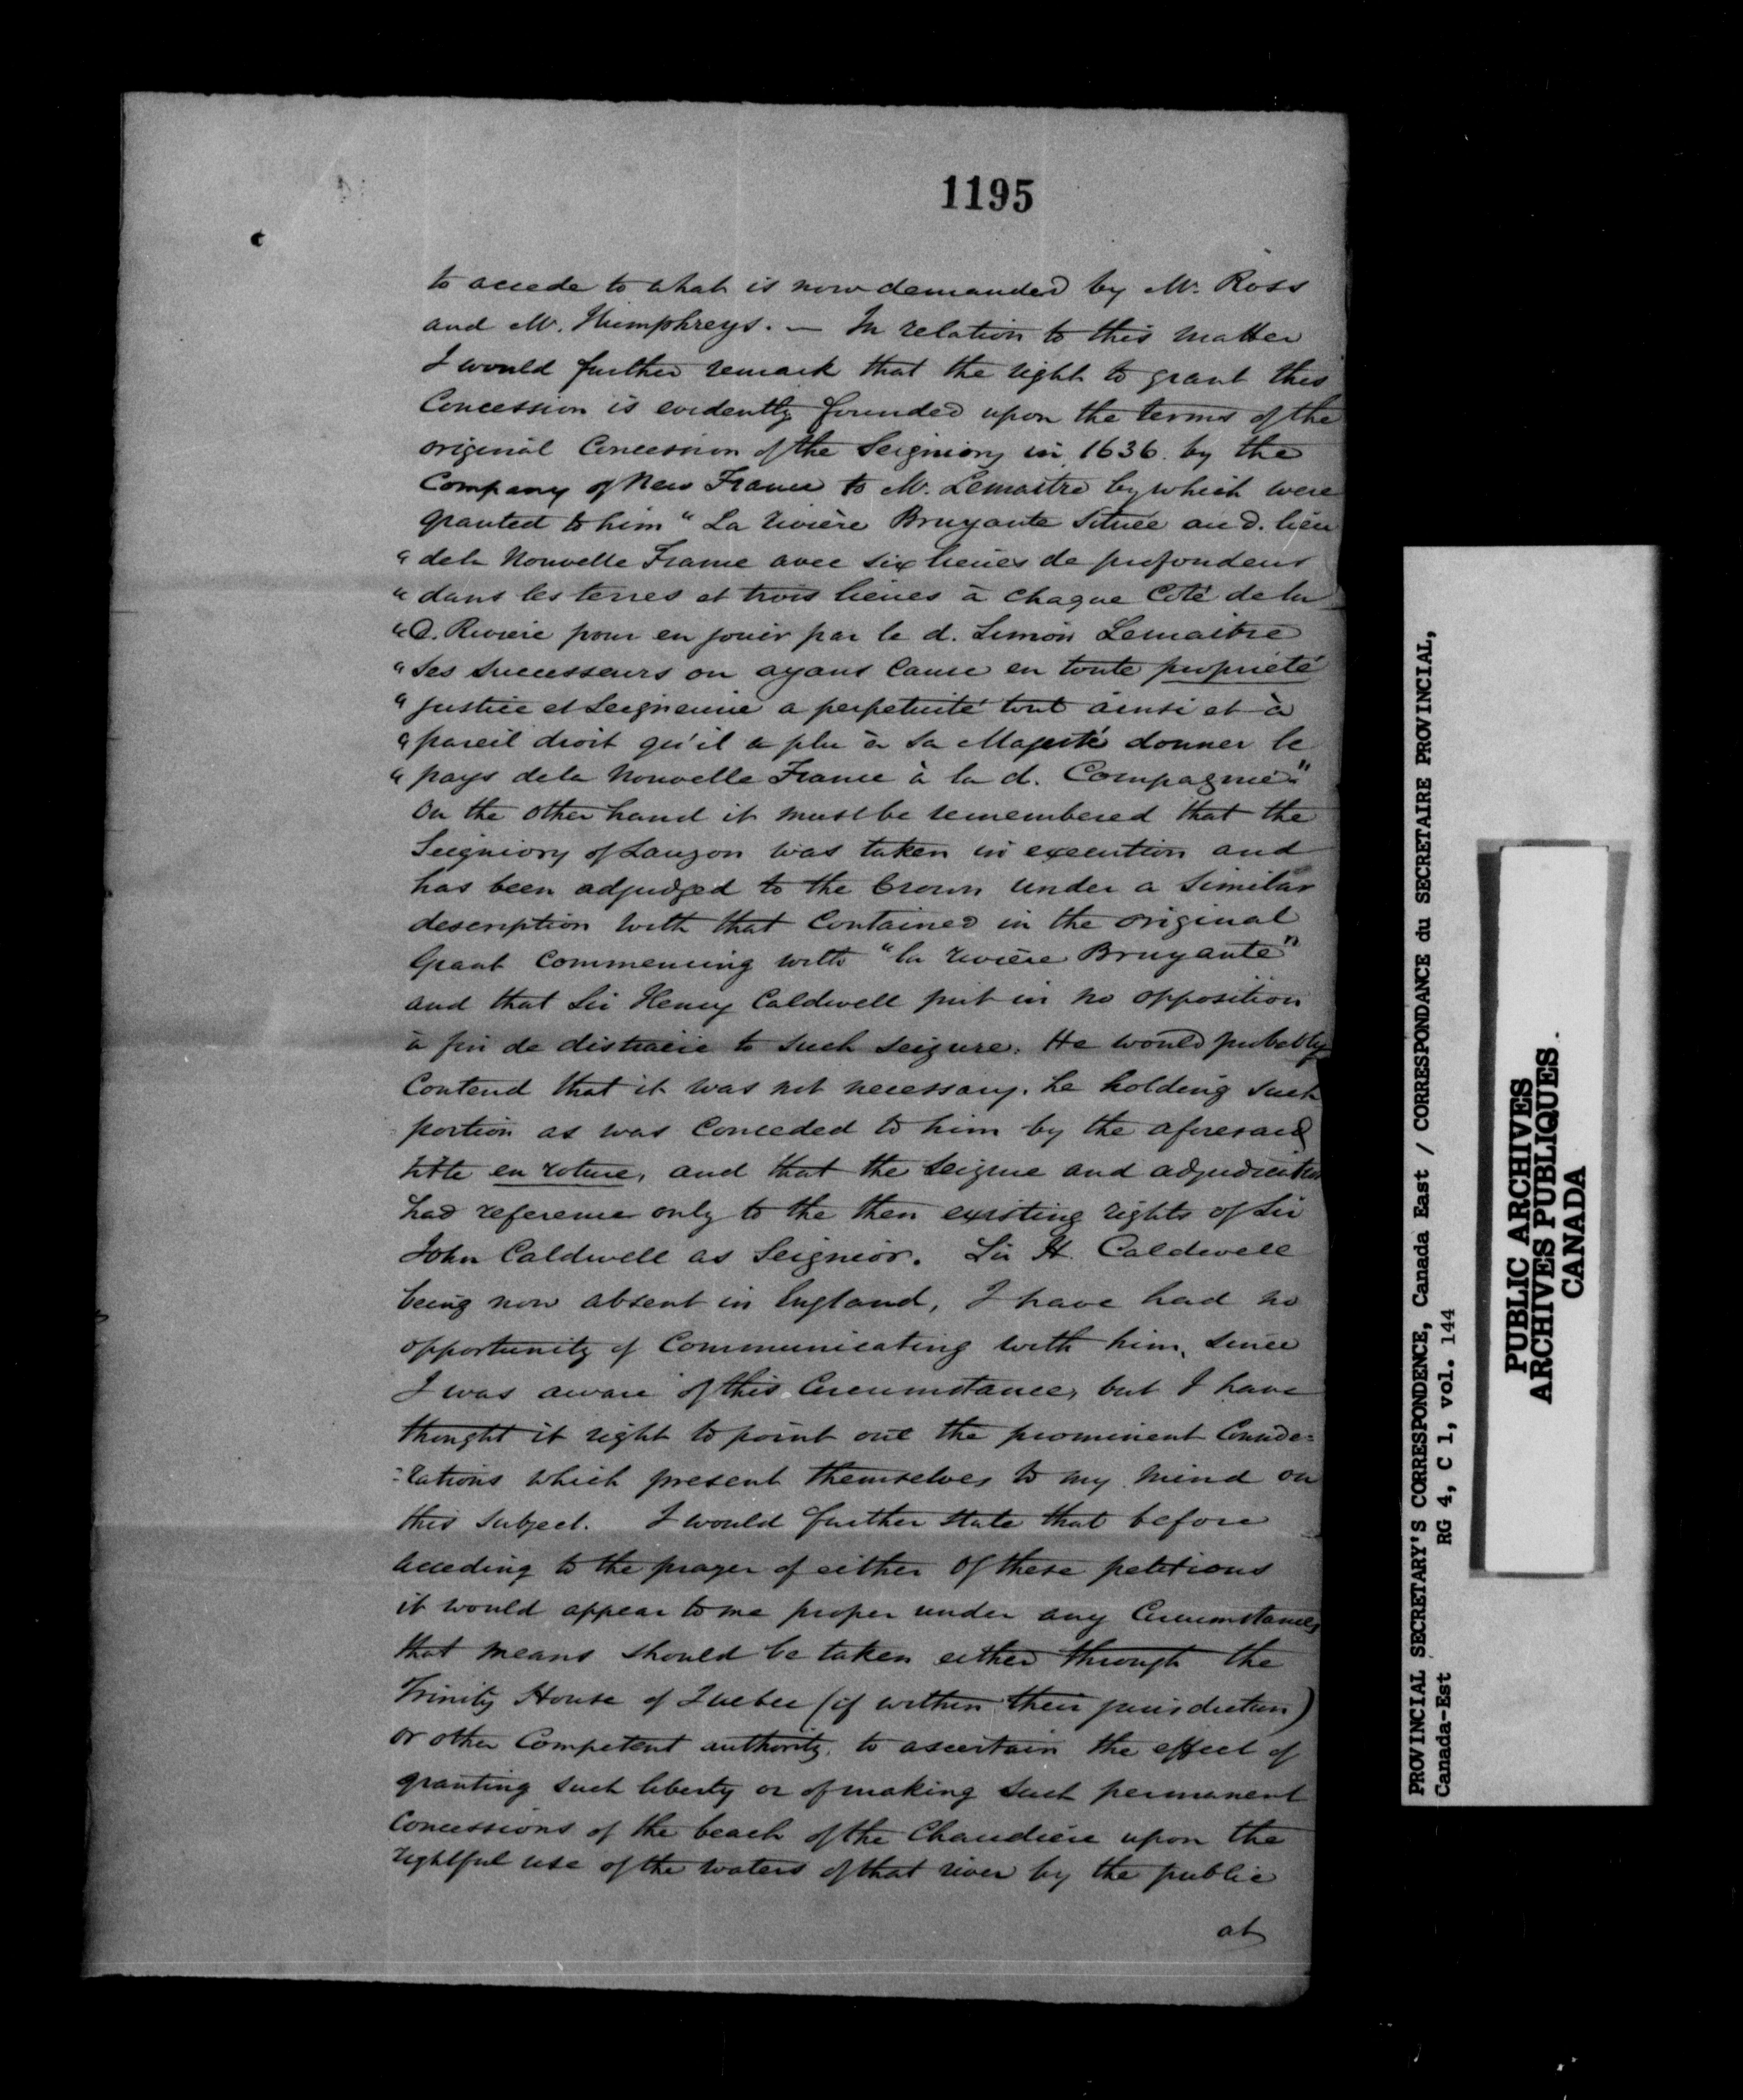 1195
to accede to what is now demanded by Mr. Ross
and Mr. Humphreys. — In relation to this matter
I would further remark that the right to grant this
Concession is evidently founded upon the terms of the
original Concession of the Seigniory in 1636. by the
Company of New France to Mr. Lemaitre by which were
granted to him " La rivière Bruyante Située au d. lieu
" dela Nouvelle France avec six lieües de profondeur
" dans les terres et trois lieues à chaque Coté de la
" d. Riviere pour en jouir par le d. Simon Lemaitre
" ses successeurs ou ayans Cause en toute propriété
" justice et Seigneurie a perpetuité tout ainsi et à
" pareil droit qu'il a plu à Sa Majesté donner le
" pays dela Nouvelle France à la d. Compagnie"
On the other hand it must be remembered that the
Seigniory of Lauzon was taken in execution and
has been adjudged to the Crown under a similar
description with that Contained in the original
Grant Commencing with "la rivière Bruyante"
and that Sir Henry Caldwell put in no opposition
à fin de distraire to such seizure. He would probably
Contend that it was not necessary. he holding such
portion as was Conceded to him by the aforesaid
title en roture, and that the seizure and adjudication
had reference only to the then existing rights of Sir
John Caldwell as Seignior. Sir H. Caldwell
being now absent in England, I have had no
opportunity of Communicating with him, since
I was aware of this Circumstance, but I have
thought it right to point out the prominent Conside=
=rations which present themselves to my mind on
this subject. I would further state that before
acceding to the prayer of either of these petitions
it would appear to me proper under any Circumstances
that means should be taken either through the
Trinity House of Quebec (if within their jurisdiction)
or other Competent authority, to ascertain the effect of
granting such liberty or of making such permanent
Concessions of the beach of the Chaudiere upon the
rightful use of the waters of that river by the public
at
PROVINCIAL SECRETARY'S CORRESPONDENCE, Canada East / CORRESPONDANCE du SECRETAIRE PROVINCIAL,
Canada-Est RG 4, C 1, vol. 144
PUBLIC ARCHIVES
ARCHIVES PUBLIQUES
CANADA